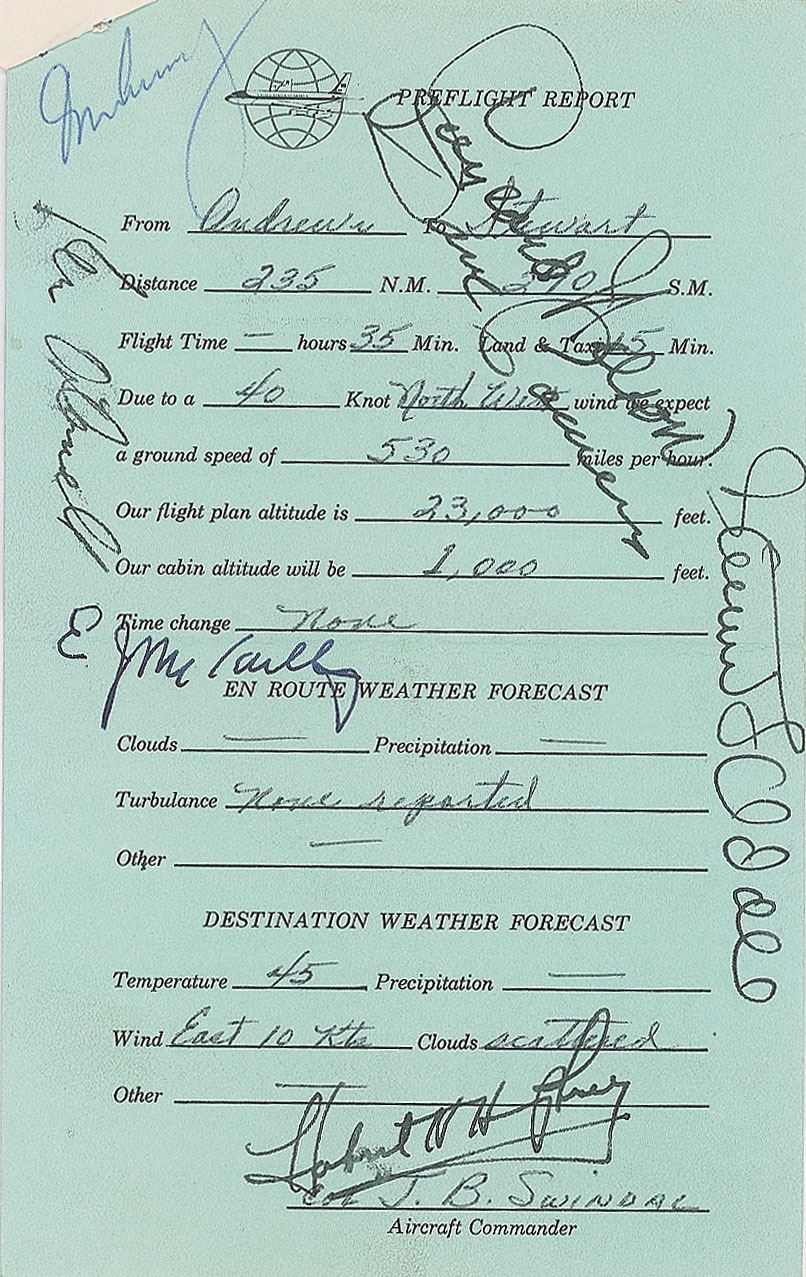 PREFLIGHT REPORT
From Andrews To Stewart
Distance 235 N.M. 270 S.M.
Flight Time — hours 35 Min. Land & Taxi 15 Min.
Due to a 40 Knot North West wind we expect
a ground speed of 530 miles per hour.
Our flight plan altitude is 23,000 feet.
Our cabin altitude will be 1,000 feet.
Time change None
E J McCarthy
EN ROUTE WEATHER FORECAST
Clouds — Precipitation —
Turbulance None reported
Other —
DESTINATION WEATHER FORECAST
Temperature 45 Precipitation —
Wind East 10 Kts Clouds scattered
Other —
Hubert H Humphrey
Col J. B. Swindal
Aircraft Commander